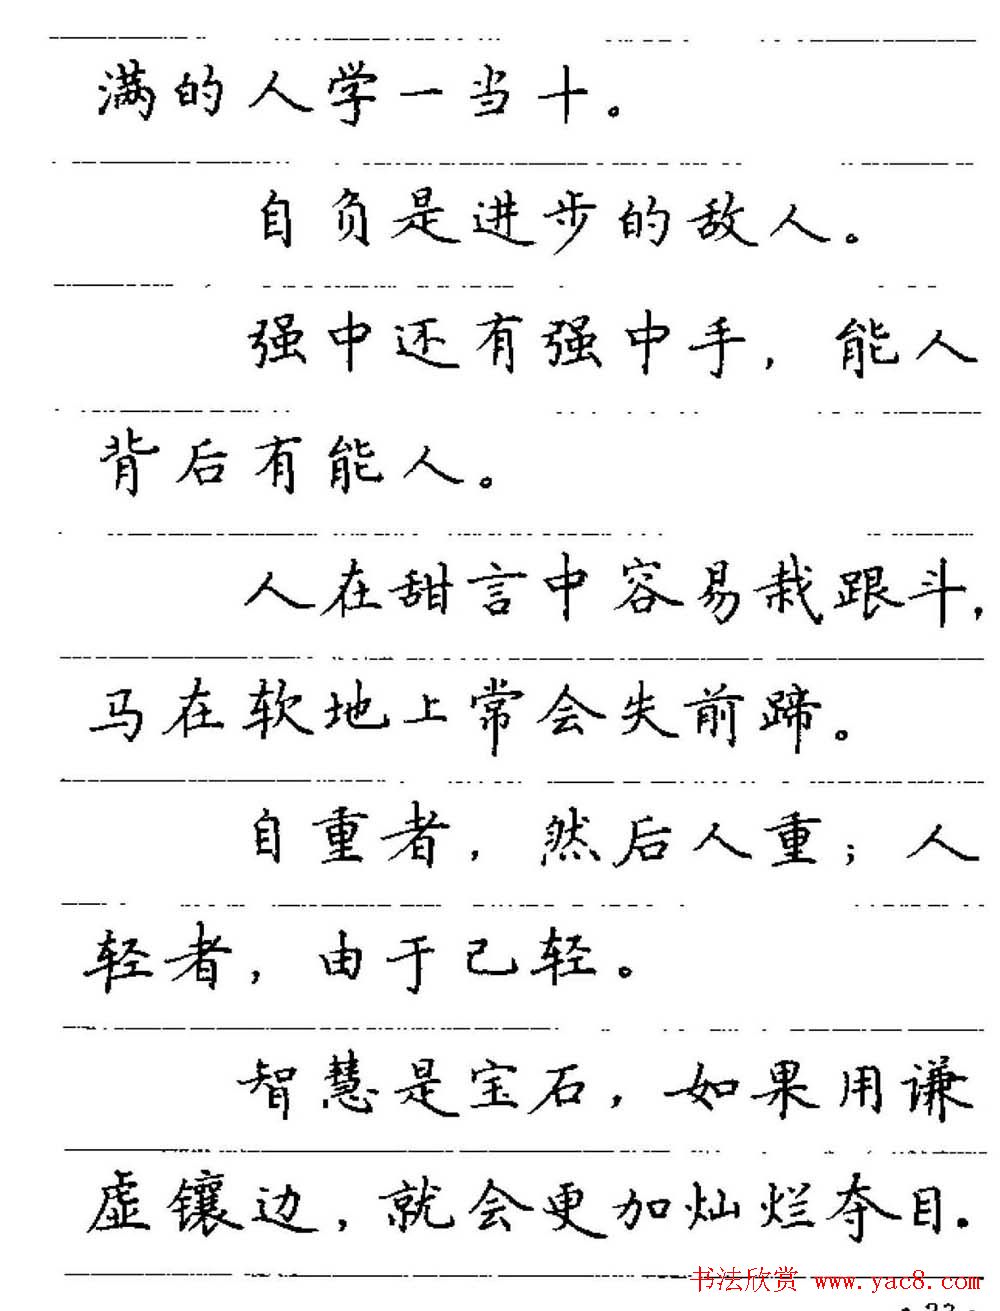 满的人学一当十。
自负是进步的敌人。
强中还有强中手，能人
背后有能人。
人在甜言中容易栽跟斗，
马在软地上常会失前蹄。
自重者，然后人重；人
轻者，由于己轻。
智慧是宝石，如果用谦
虚镶边，就会更加灿烂夺目。
书法欣赏 www.yac8.com